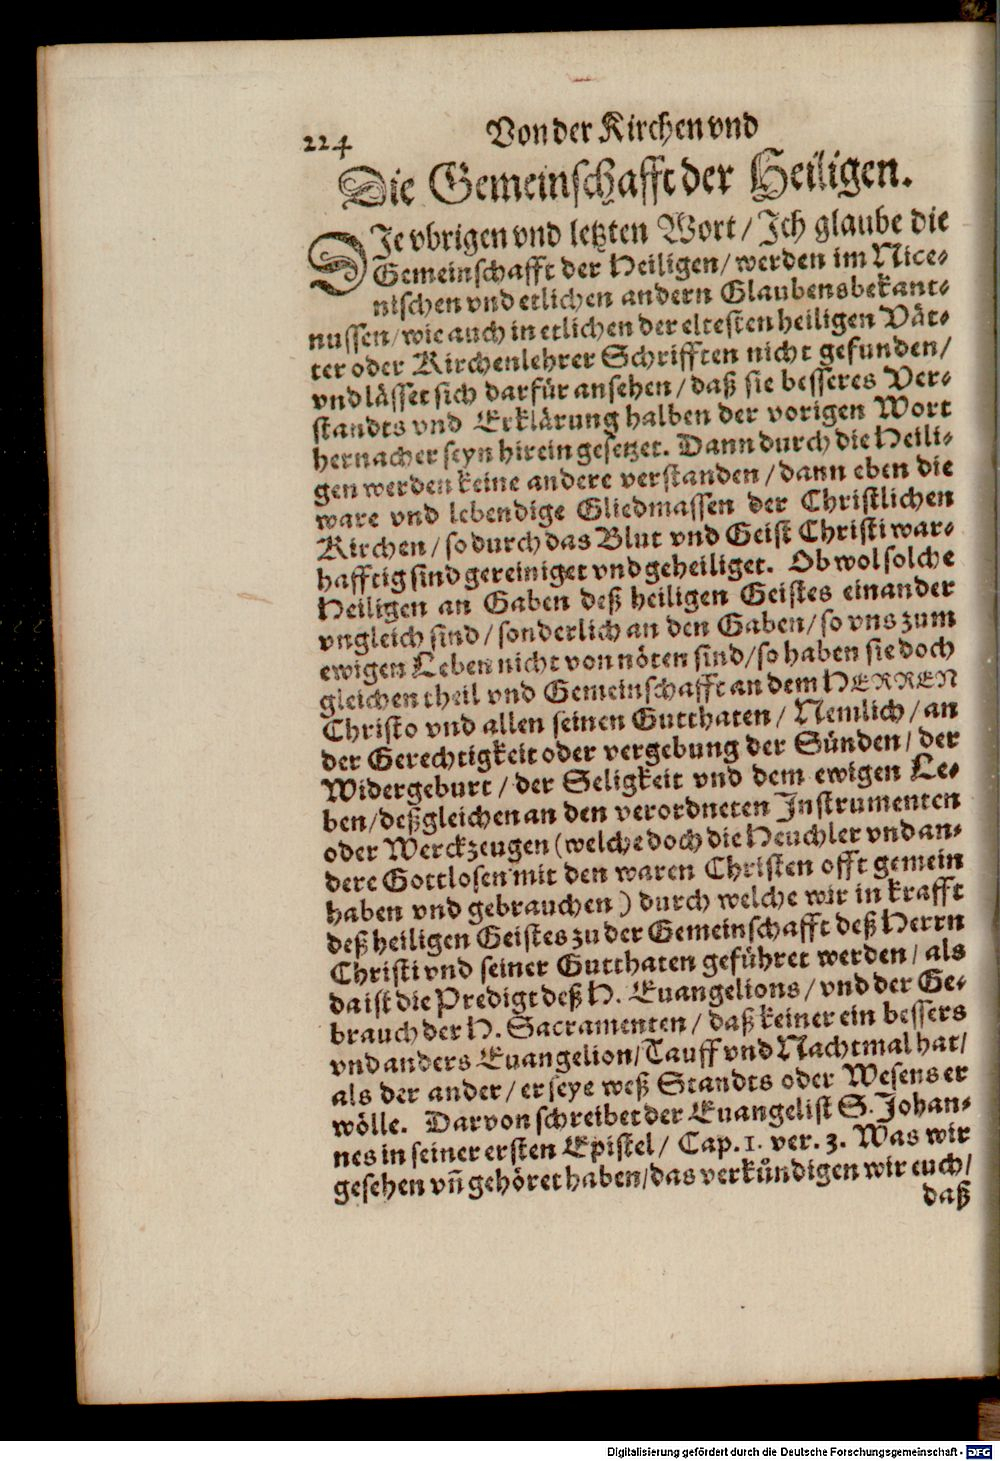 224 Von der Kirchen vnd
Die Gemeinschafft der Heiligen.
DJe vbrigen vnd letzten Wort / Jch glaube die
Gemeinschafft der Heiligen / werden im Nice-
nischen vnd etlichen andern Glaubensbekant-
nussen / wie auch in etlichen der eltesten heiligen Vät-
ter oder Kirchenlehrer Schrifften nicht gefunden /
vnd lässet sich darfür ansehen / daß sie besseres Ver-
standts vnd Erklärung halben der vorigen Wort
hernacher seyn hirein gesetzet. Dann durch die Heili-
gen werden keine andere verstanden / dann eben die
ware vnd lebendige Gliedmassen der Christlichen
Kirchen / so durch das Blut vnd Geist Christi war-
hafftig sind gereiniget vnd geheiliget. Ob wol solche
Heiligen an Gaben deß heiligen Geistes einander
vngleich sind / sonderlich an den Gaben / so vns zum
ewigen Leben nicht von nöten sind / so haben sie doch
gleichen theil vnd Gemeinschafft an dem HERREN
Christo vnd allen seinen Gutthaten / Nemlich / an
der Gerechtigkeit oder vergebung der Sünden / der
Widergeburt / der Seligkeit vnd dem ewigen Le-
ben / deßgleichen an den verordneten Instrumenten
oder Werckzeugen (welche doch die Heuchler vnd an-
dere Gottlosen mit den waren Christen offt gemein
haben vnd gebrauchen) durch welche wir in krafft
deß heiligen Geistes zu der Gemeinschafft deß Herrn
Christi vnd seiner Gutthaten geführet werden / als
da ist die Predigt deß H. Euangelions / vnd der Ge-
brauch der H. Sacramenten / daß keiner ein bessers
vnd anders Euangelion / Tauff vnd Nachtmal hat /
als der ander / er seye weß Standts oder Wesens er
wölle. Darvon schreibet der Euangelist S. Johan-
nes in seiner ersten Epistel / Cap. 1. ver. 3. Was wir
gesehen vn̄ gehöret haben / das verkůndigen wir euch /
daß
Digitalisierung gefördert durch die Deutsche Forschungsgemeinschaft - DFG